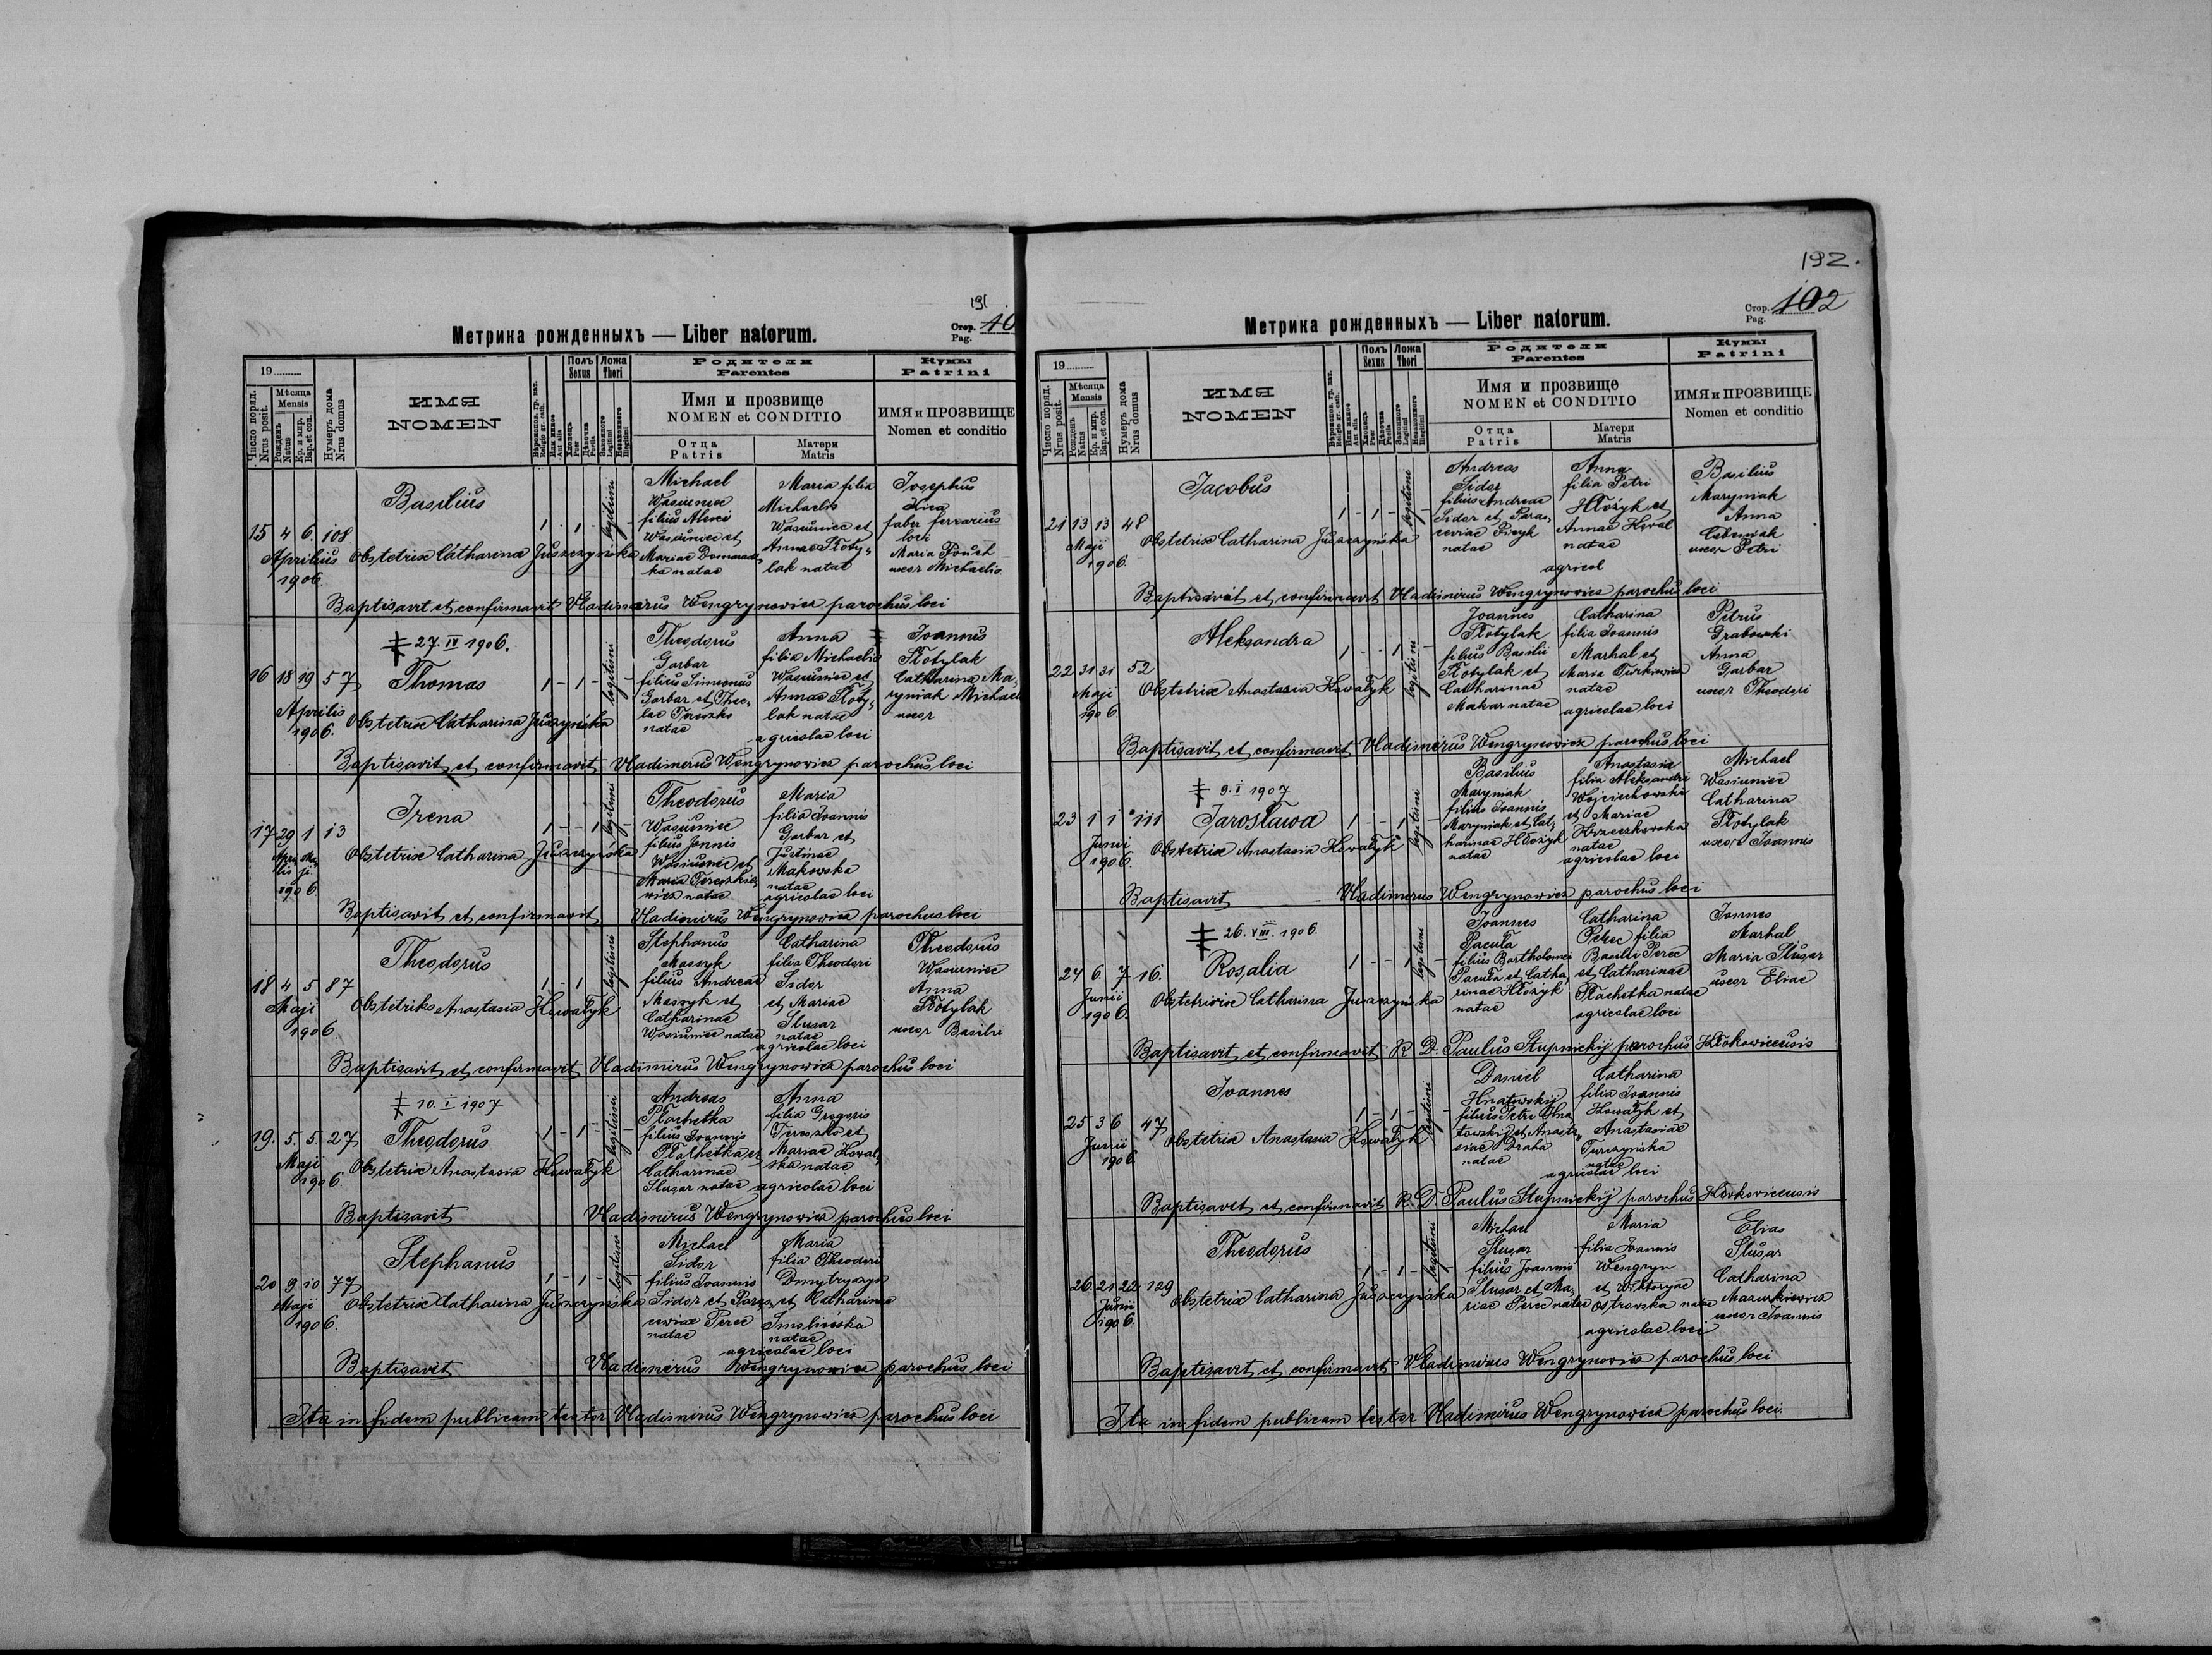 191
Стор. 10
Pag.
Метрика рожденныхъ — Liber natorum.
19
Число поряд.
Nrus posit.
Мѣсяца
Mensis
Рожденъ
Natus
Кр. и мир.
Bap. et con.
Нумеръ дома
Nrus domus
ИМЯ
NOMEN
Religio gr. cath.
Или инное
Aut alia
Полъ
Sexus
Хлопець
Puer
Дѣвочка
Puella
Ложа
Thori
Законного
Legitimi
Незаконного
Illegitimi
Родители
Parentes
Имя и прозвище
NOMEN et CONDITIO
Отца
Patris
Матери
Matris
Кумы
Patrini
ИМЯ и ПРОЗВИЩЕ
Nomen et conditio
15 4 6. 108
Aprilius
1906.
Basilius
Obstetrix Catharina Juszczyńska
1 - 1 - legitimi -
Michael
Wasiuniec
filius Alexei
Wasiuniec et
Mariae
ka natae
Maria filia
Michaelis
Wasiuniec et
Annae Słoty-
lak natae
Josephus
faber ferrarius
loci
Maria
uxor Michaelis
Baptisavit et confirmavit Vladimirus Wengrynowicz parochus loci
27. IV 1906.
16 18 19 57
Aprilis
1906.
Thomas
Obstetrix Catharina Juszczyńska
1 - 1 - legitimi -
Theodorus
Garbar
filius Simeonis
Garbar et Thec-
lae Tereszko
natae
Anna
filia Michaelis
Wasiuniec et
Annae Słoty-
lak natae
agricolae loci
Joannis
Słotylak
Catharina Ma-
ryniak Michael
uxor
Baptisavit et confirmavit Vladimirus Wengrynowicz parochus loci
17 29 1 13
Apri- Ma-
lis ji
1906
Irena
Obstetrix Catharina Juszczyńska
1 - - 1 legitimi -
Theodorus
Wasiuniec
filius Jonnis
Wasiuniec et
Maria Tereszkie-
wicz natae
Maria
filia Joannis
Garbar et
Justinae
Makowska
natae
agricolae loci
Baptisavit et confirmavit Vladimirus Wengrynowicz parochus loci
18 4 5 87
Maji
1906.
Theodorus
Obstetriks Anastasia Kowałyk
1 - 1 - legitimi
Stephanus
Masnyk
filius Andreae
Masnyk et
Catharinae
Wasiuniec natae
Catharina
filia Theodori
Sidor
et Mariae
Slusar
natae
agricolae loci
Theodorus
Wasiuniec
Anna
Słotylak
uxor Basilii
Baptisavit et confirmavit Vladimirus Wengrynowicz parochus loci
10. I 1907
19. 5. 5. 27
Maji
1906
Theodorus
Obstetrix Anastasia Kowałyk
1 - 1 - legitimi -
Andreas
Płachetka
filius Joannis
Płachetka et
Catharinae
Slusar natae
Anna
filia Gregoris
Tereszko et
Mariae Kowal-
ska natae
agricolae loci
Baptisavit Vladimirus Wengrynowicz parochus loci
20 9 10 77
Maji
1906.
Stephanus
Obstetrix Catharina Juszczyńska
1 - 1 - legitimi -
Michael
Sidor
filius Joannis
Sidor et Paras-
cewiae Perec
natae
Maria
filia Theodori
Dmytryszyn
et Catharinae
natae
agricolae loci
Baptisavit Vladimirus Wengrynowicz parochus loci
Ita in fidem publicam testor Vladimirus Wengrynowicz parochus loci
192.
Стор. 102
Pag.
Метрика рожденныхъ — Liber natorum.
19
Число поряд.
Nrus posit.
Мѣсяца
Mensis
Рожденъ
Natus
Кр. и мир.
Bap. et con.
Нумеръ дома
Nrus domus
ИМЯ
NOMEN
Religio gr. cath.
Или инное
Aut alia
Полъ
Sexus
Хлопець
Puer
Дѣвочка
Puella
Ложа
Thori
Законного
Legitimi
Незаконного
Illegitimi
Родители
Parentes
Имя и прозвище
NOMEN et CONDITIO
Отца
Patris
Матери
Matris
Кумы
Patrini
ИМЯ и ПРОЗВИЩЕ
Nomen et conditio
21 13 13 48
Maji
1906.
Jacobus
Obstetrix Catharina Juszczyńska
1 - 1 - legitimi -
Andreas
Sidor
filius Andreae
Sidor et Paras-
ceviae
natae
Anna
filia Petri
Hłożyk et
Annae Kowal
natae
agricol
Basilius
Maryniak
Anna
uxor Petri
Baptisavit et confirmavit Vladimirus Wengrynowicz parochus loci
22 31 31 52
Maji
1906.
Aleksandra
Obstetrix Anastasia Kowałyk
1 - - 1 legitimi -
Joannes
Słotylak
filius Basilii
Słotylak et
Catharinae
Makar natae
Catharina
filia Joannis
Marhal et
Maria Turkiewicz
natae
agricolae loci
Petrus
Grabowski
Anna
Garbar
uxor Theodori
Baptisavit et confirmavit Vladimirus Wengrynowicz parochus loci
9. I 1907
23 1 1 111
Junii
1906.
Jarosława
Obstetrix Anastasia Kowałyk
1 - - 1 legitimi -
Basilius
Maryniak
filius Joannis
Maryniak et Cat-
harinae Hłożyk
natae
Anastasia
filia Aleksandri
Wojciechowski
et Mariae
natae
agricolae loci
Michael
Wasiuniec
Catharina
Słotylak
uxor Joannis
Baptisavit Vladimirus Wengrynowicz parochus loci
26. VIII. 1906.
24 6. 7 16.
Junii
1906.
Rosalia
Obstetrix Catharina Juszczyńska
1 - - 1 legitimi -
Joannes
Pacuła
filius Bartholomei
Pacuła et Catha-
rinae Hłożyk
natae
Catharina
Perec filia
Basilii Perec
et Catharinae
Płachetka natae
agricolae loci
Jonnes
Marhal
Maria Slusar
uxor Eliae
Baptisavit et confirmavit R. D. Paulus Stupnickij parochus
25 3 6 47
Junii
1906.
Joannes
Obstetrix Anastasia Kowałyk
1 - 1 - legitimi -
Daniel
Hnatowskij
filius Petri Hna-
towskij et Anasta-
siae
natae
Catharina
filia Joannis
Kowałyk et
Anastasiae
Turczyńska
natae
agricolae loci
Baptisavit et confirmavit R. D. Paulus Stupnickij parochus
26. 21 22 129
Junii
1906.
Theodorus
Obstetrix Catharina Juszczyńska
1 - 1 - legitimi
Michael
Slusar
filius Joannis
Slusar et Ma-
riae Perec natae
Maria
filia Joannis
Wengryn
et Wiktoryae
Ostrowska natae
agricolae loci
Elias
Slusar
Catharina
Mazurkiewicz
uxor Joannis
Baptisavit et confirmavit Vladimirus Wengrynowicz parochus loci
Ita in fidem publicam testor Vladimirus Wengrynowicz parochus loci.